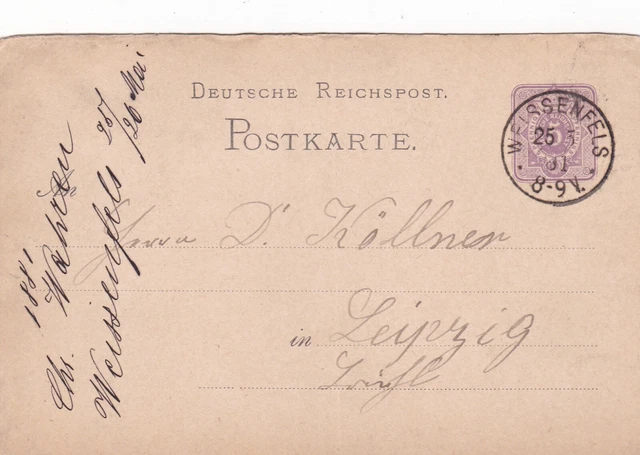 DEUTSCHE REICHSPOST.
POSTKARTE.
WEISSENFELS
25 5
81
8-9 V.
5
Herrn Dr Köllner
in Leipzig
1881
Chr. Wahren
Weissenfels 25/
/26 Mai